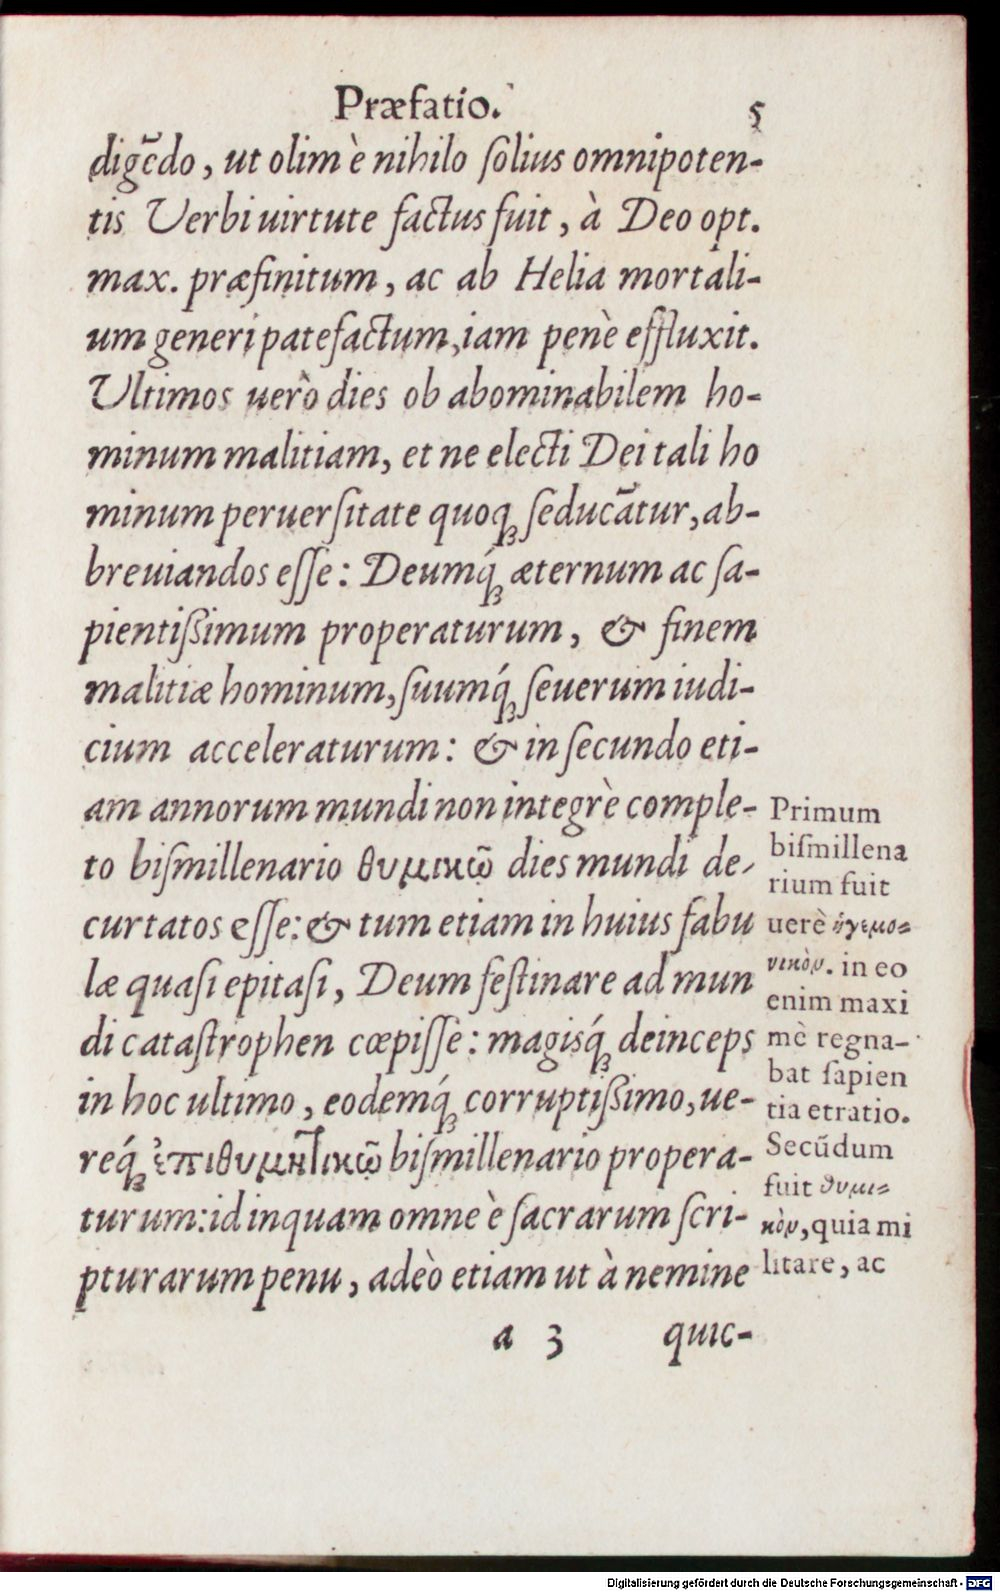 Præfatio. 5
digēdo, ut olim è nihilo ſolius omnipoten-
tis Verbi uirtute factus fuit, à Deo opt.
max. præfinitum, ac ab Helia mortali-
um generi patefactum, iam penè effluxit.
Ultimos uerò dies ob abominabilem ho-
minum malitiam, et ne electi Dei tali ho
minum peruerſitate quoqꝫ ſeducātur, ab-
breuiandos eſſe: Deumq́ꝫ æternum ac ſa-
pientißimum properaturum, & finem
malitiæ hominum, ſuumq́ꝫ ſeuerum iudi-
cium acceleraturum: & in ſecundo eti-
am annorum mundi non integrè comple-
to biſmillenario θυμικῶ dies mundi de-
curtatos eſſe: & tum etiam in huius fabu
læ quaſi epitaſi, Deum feſtinare ad mun
di cataſtrophen cœpiſſe: magisq́ꝫ deinceps
in hoc ultimo, eodemq́ꝫ corruptißimo, ue-
req́ꝫ ἐπιθυμητικῶ biſmillenario propera-
turum: id inquam omne è ſacrarum ſcri-
pturarum penu, adeò etiam ut à nemine
a 3 quic-
Primum
biſmillena
rium fuit
uerè ἡγεμο-
νικὸν. in eo
enim maxi
mè regna-
bat ſapien
tia et ratio.
Secūdum
fuit θυμι-
κὸν, quia mi
litare, ac
Digitalisierung gefördert durch die Deutsche Forschungsgemeinschaft - DFG